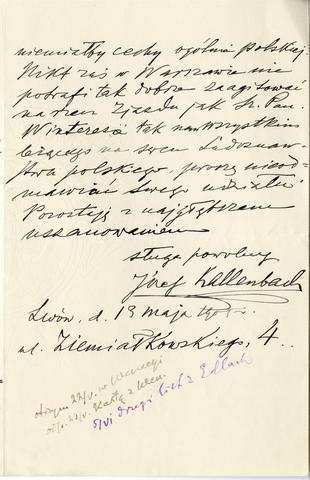 nie miałby cechy ogólnie polskiej.
Nikt zaś w Warszawie nie
potrafi tak dobrze zaagitować
na rzecz Zjazdu jak Sz. Pan.
W interesie tak nam wszystkim
leżącego na sercu Ludoznaw-
stwa polskiego, proszę nie od-
mawiać swego udziału
Pozostaję z najgłębszem
uszanowaniem
sługa powolny
Józef Kallenbach
Lwów, d. 19 maja
ul. Ziemiałkowskiego, 4.
otrzym 22/V. w Wenecyi
kartą z Wen.
5/VI drugi list z Edlach